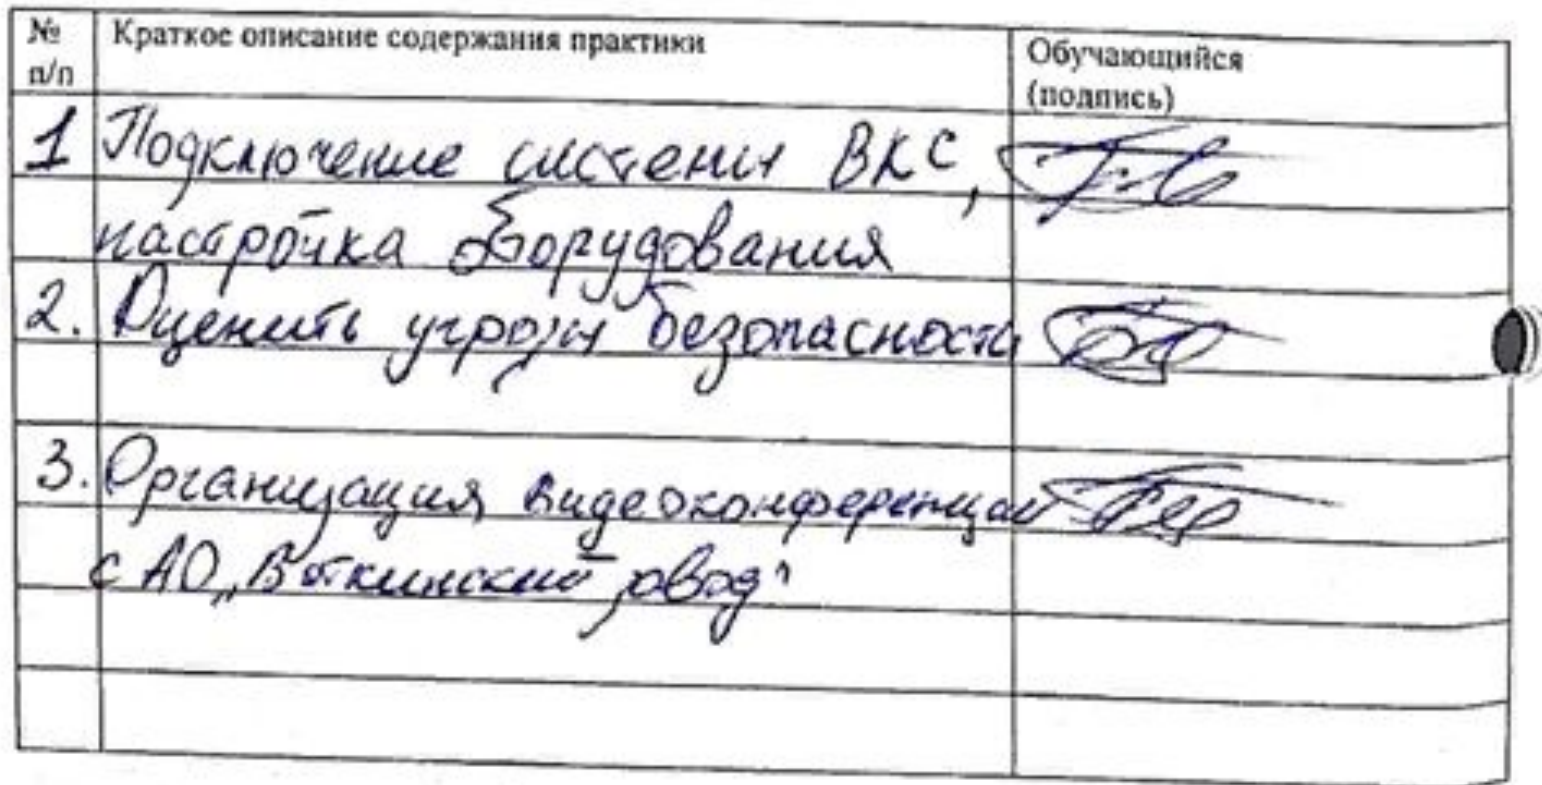 № п/п
Краткое описание содержания практики
Обучающийся
(подпись)
1 Подключение системы ВКС,
настройка оборудования
2. Оценить угрозы безопасности
3. Организация видеоконференции
с АО „Воткинский завод"